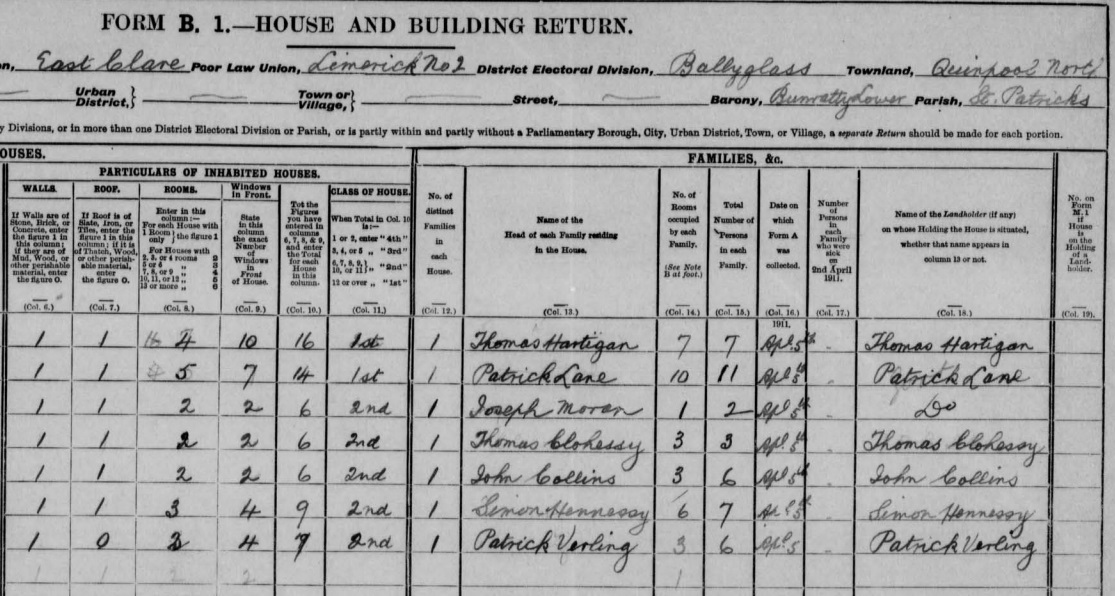 FORM B. 1.—HOUSE AND BUILDING RETURN.
n, East Clare Poor Law Union, Limerick No 2 District Electoral Division, Ballyglass Townland, Quinpool North
Urban District, Town or Village, Street, Barony, Bunratty Lower Parish, St. Patricks
y Divisions, or in more than one District Electoral Division or Parish, or is partly within and partly without a Parliamentary Borough, City, Urban District, Town, or Village, a separate Return should be made for each portion.
OUSES.
FAMILIES, &c.
PARTICULARS OF INHABITED HOUSES.
WALLS.
If Walls are of
Stone, Brick, or
Concrete, enter
the figure 1 in
this column;
if they are of
Mud, Wood, or
other perishable
material, enter
the figure 0.
(Col. 6.)
ROOF.
If Roof is of
Slate, Iron, or
Tiles, enter the
figure 1 in this
column; if it is
of Thatch, Wood,
or other perish-
able material,
enter
the figure 0.
(Col. 7.)
ROOMS.
Enter in this
column:—
For each House with
1 Room only } the figure 1
For Houses with
2, 3, or 4 rooms 2
5 or 6 „ 3
7, 8, or 9 „ 4
10, 11, or 12 „ 5
13 or more „ 6
(Col. 8.)
Windows
in Front.
State
in this
column
the exact
Number
of
Windows
in
Front
of House.
(Col. 9.)
Tot the
Figures
you have
entered in
columns
6, 7, 8, & 9,
and enter
the Total
for each
House
in this
column.
(Col. 10.)
CLASS OF HOUSE.
When Total in Col. 10
is:—
1 or 2, enter "4th"
3, 4, or 5 „ "3rd"
6, 7, 8, 9, 10, or 11 } „ "2nd"
12 or over „ "1st"
(Col. 11.)
No. of
distinct
Families
in
each
House.
(Col. 12.)
Name of the
Head of each Family residing
in the House.
(Col. 13.)
No. of
Rooms
occupied
by each
Family.
(See Note
B at foot.)
(Col. 14.)
Total
Number of
Persons
in each
Family.
(Col. 15.)
Date on
which
Form A
was
collected.
(Col. 16.)
Number
of Persons
in each
Family
who were
sick
on
2nd April
1911.
(Col. 17.)
Name of the Landholder (if any)
on whose Holding the House is situated,
whether that name appears in
column 13 or not.
(Col. 18.)
No. on
Form
M.1
if
House
is
on the
Holding
of a
Land-
holder.
(Col. 19).
1911.
1 1 4 10 16 1st 1 Thomas Hartigan 7 7 Apl 5th Thomas Hartigan
1 1 5 7 14 1st 1 Patrick Lane 10 11 Apl 5th Patrick Lane
1 1 2 2 6 2nd 1 Joseph Moran 1 2 Apl 5th Do
1 1 2 2 6 2nd 1 Thomas Clohessy 3 3 Apl 5th Thomas Clohessy
1 1 2 2 6 2nd 1 John Collins 3 6 Apl 5th John Collins
1 1 3 4 9 2nd 1 Simon Hennessy 6 7 Apl 5th Simon Hennessy
1 0 4 2nd 1 Patrick Verling 3 6 Apl 5 Patrick Verling
1 1 2 2 1